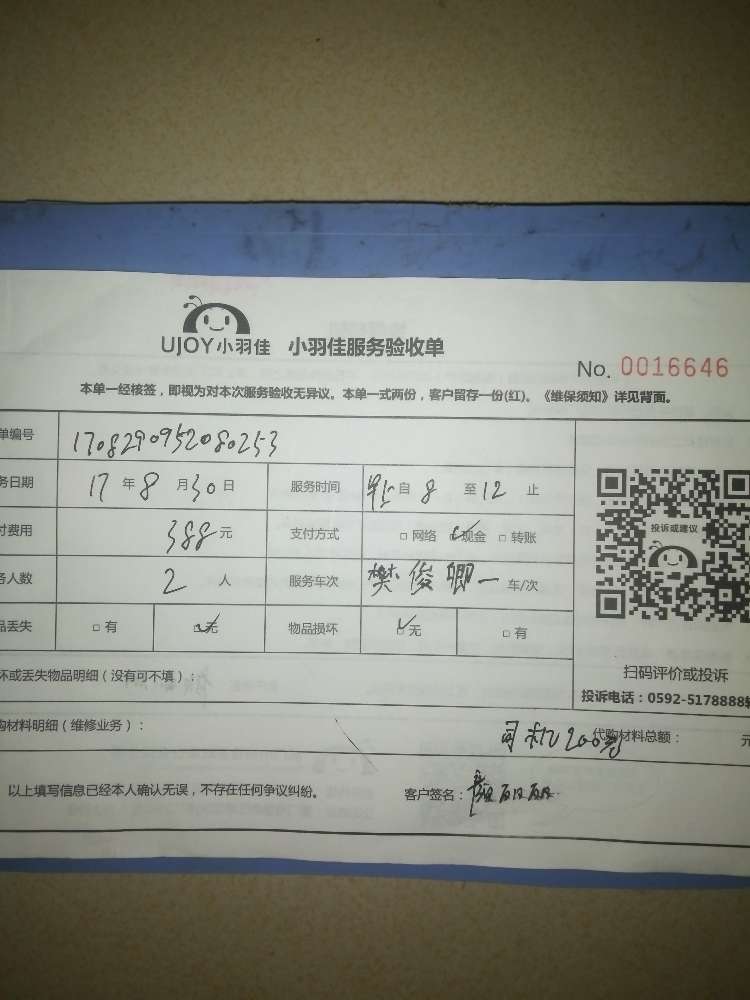 UJOY小羽佳 小羽佳服务验收单
No. 0016646
本单一经核签，即视为对本次服务验收无异议。本单一式两份，客户留存一份(红)。《维保须知》详见背面。
单编号 1708290952080253
务日期 17年8月30日 服务时间 自8至12止
付费用 388元 支付方式 □网络 ☑现金 □转账
务人数 2人 服务车次 樊俊卿一车/次
品丢失 □有 ☑无 物品损坏 ☑无 □有
投诉或建议
坏或丢失物品明细（没有可不填）：
扫码评价或投诉
投诉电话：0592-5178888转
购材料明细（维修业务）：
司机200元 代购材料总额： 元
以上填写信息已经本人确认无误，不存在任何争议纠纷。 客户签名：